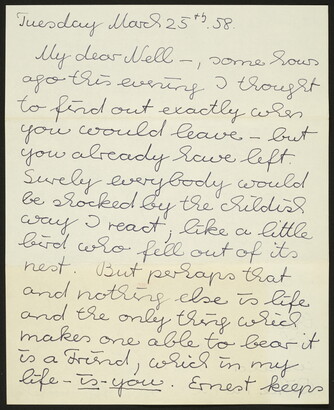 Tuesday March 25th. 58.
My dear Nell –, some hours
ago this evening I thought
to find out exactly when
you would leave – but
you already have left.
Surely everybody would
be shocked by the childish
way I react, like a little
bird who fell out of its
nest. But perhaps that
and nothing else is life
and the only thing which
makes one able to bear it
is a Friend, which in my
life – is – you. Ernest keeps